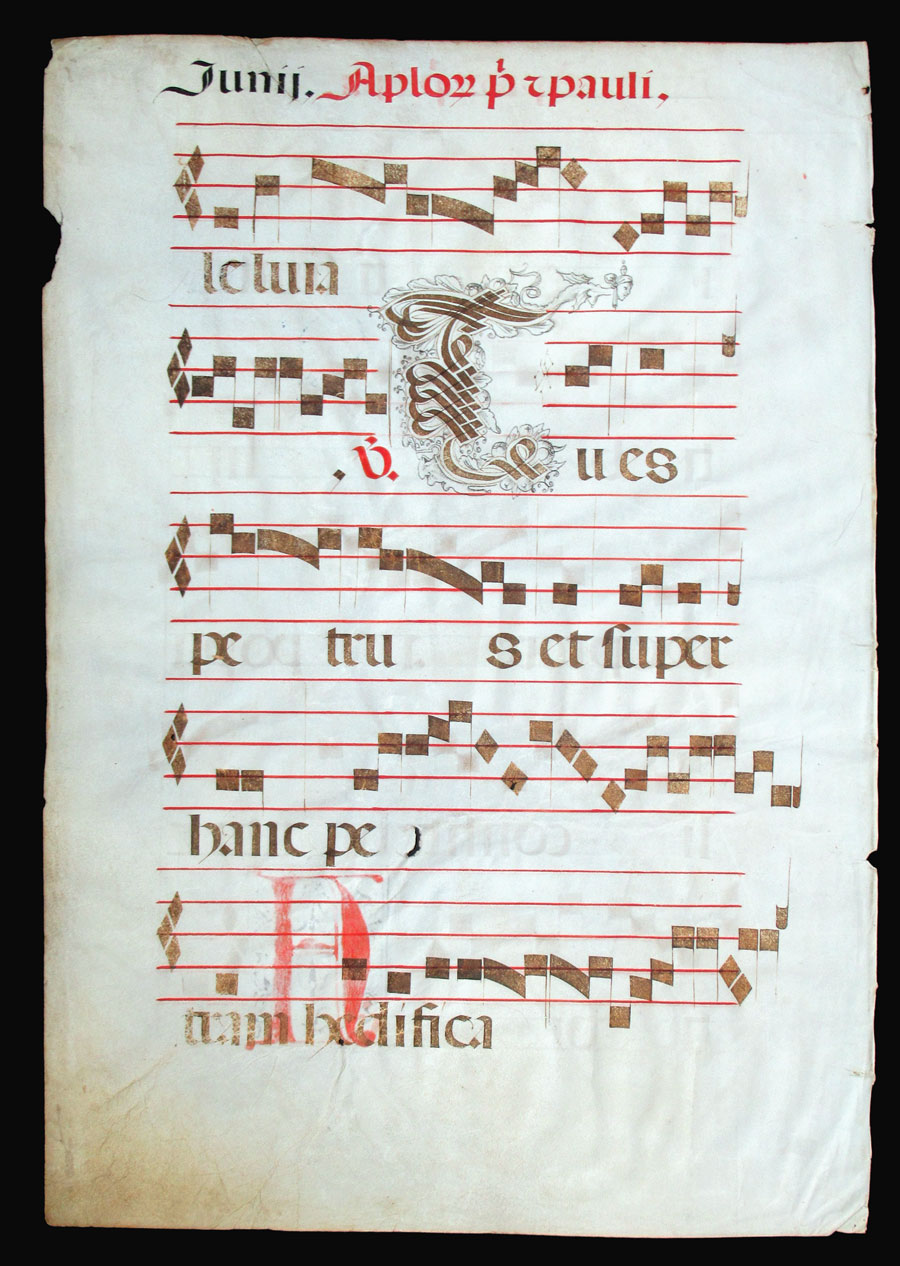 Junij. Aploꝝ p̄ ⁊ pauli.
leluia
℣. Tu es
pe tru s et super
hanc pe
tram hedifica